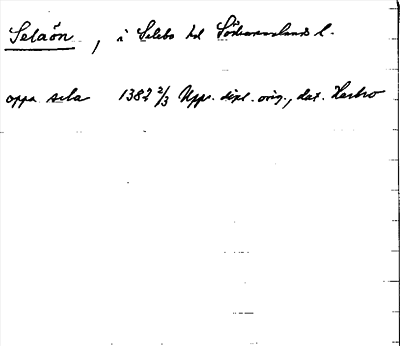 Selaön, i Selebo hd Södermanlands l.
oppa sela 1382 2/3 Upps. dipl. orig., dat. Herbro